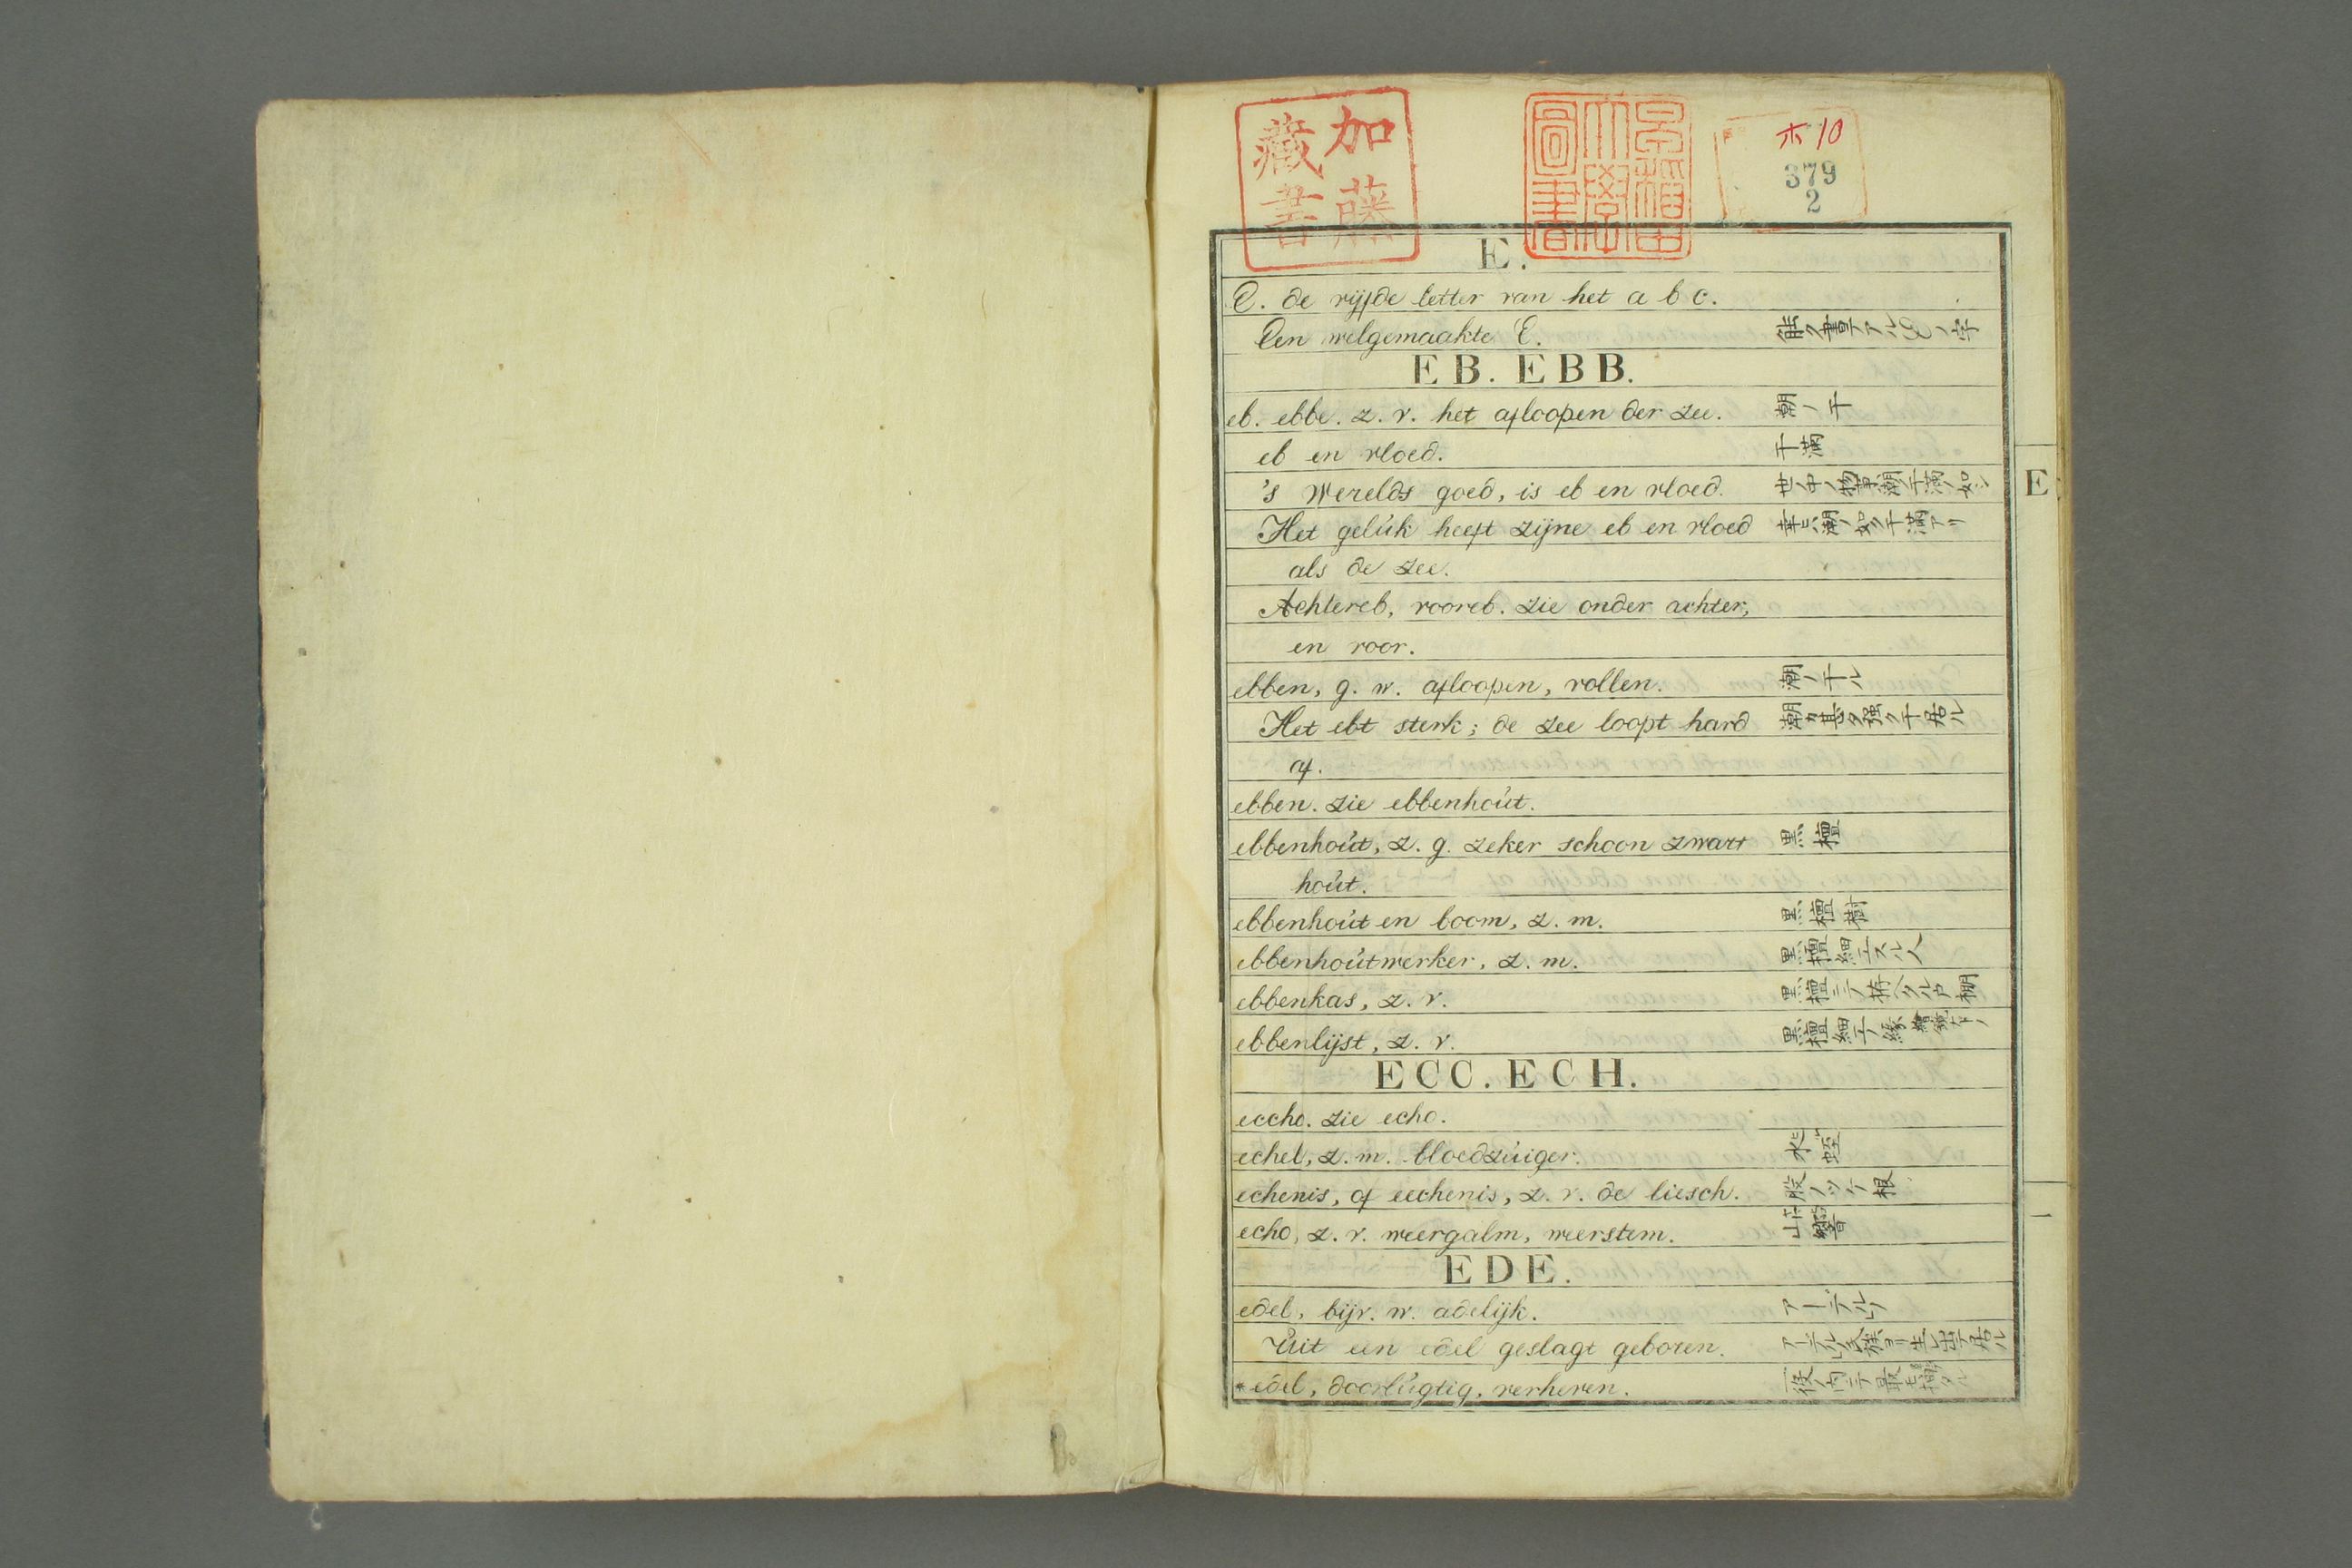 加藤
藏書
早稲田
大學
圖書
ホ10
379
2
E.
E. de vijfde letter van het a b c.
Een welgemaakte E. 能ク書テアルEノ字
EB. EBB.
eb. ebbe. z. v. het afloopen der zee. 潮ノ干
eb en vloed. 干満
's Werelds goed, is eb en vloed. 世ノ中ノ物事潮ノ干満ノ如シ
E
Het gelúk heeft zijne eb en vloed 幸ヒハ潮ノ如ク干満アリ
als de zee.
Achtereb, vooreb. zie onder achter,
en voor.
ebben, g. w. afloopen, vallen. 潮ノ干ル
Het ebt sterk; de zee loopt hard 潮カ甚タ强ク干テ居ル
af.
ebben. zie ebbenhoút.
ebbenhoút, z. g. zeker schoon zwart 黒檀
hoút.
ebbenhoút en boom, z. m. 黒檀樹
ebbenhoútwerker, z. m. 黒檀細工スル人
ebbenkas, z. v. 黒檀ニテ拵ヘタル戸棚
ebbenlijst, z. v. 黒檀細工ノ緣
ECC. ECH.
eccho. zie echo.
echel, z. m. bloedzúiger. 水蛭
echenis, of eechenis, z. v. de liesch. 股ノツケ根
echo, z. v. weergalm, weerstem. 山響
一
EDE.
edel, bijv. w. adelijk. アーデルノ
Uit een edel geslagt geboren. アーデルノ氏族ヨリ生レ出テ居ル
* edel, doorlúgtig, verheven.